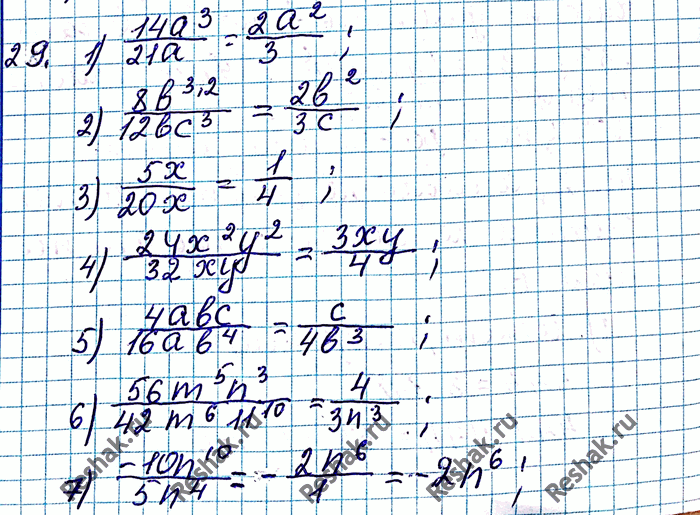 29. 1) 14a³/21a = 2a²/3 ;
2) 8b³·²/12bc³ = 2b²/3c ;
3) 5x/20x = 1/4 ;
4) 24x²y²/32xy = 3xy/4 ;
5) 4abc/16ab⁴ = c/4b³ ;
6) 56m⁵n³/42m⁶11¹⁰ = 4/3n³ ;
7) -10n¹⁰/5n⁴ = -2n⁶/1 = -2n⁶ ;
Reshak.ru Reshak.ru Reshak.ru Reshak.ru Reshak.ru